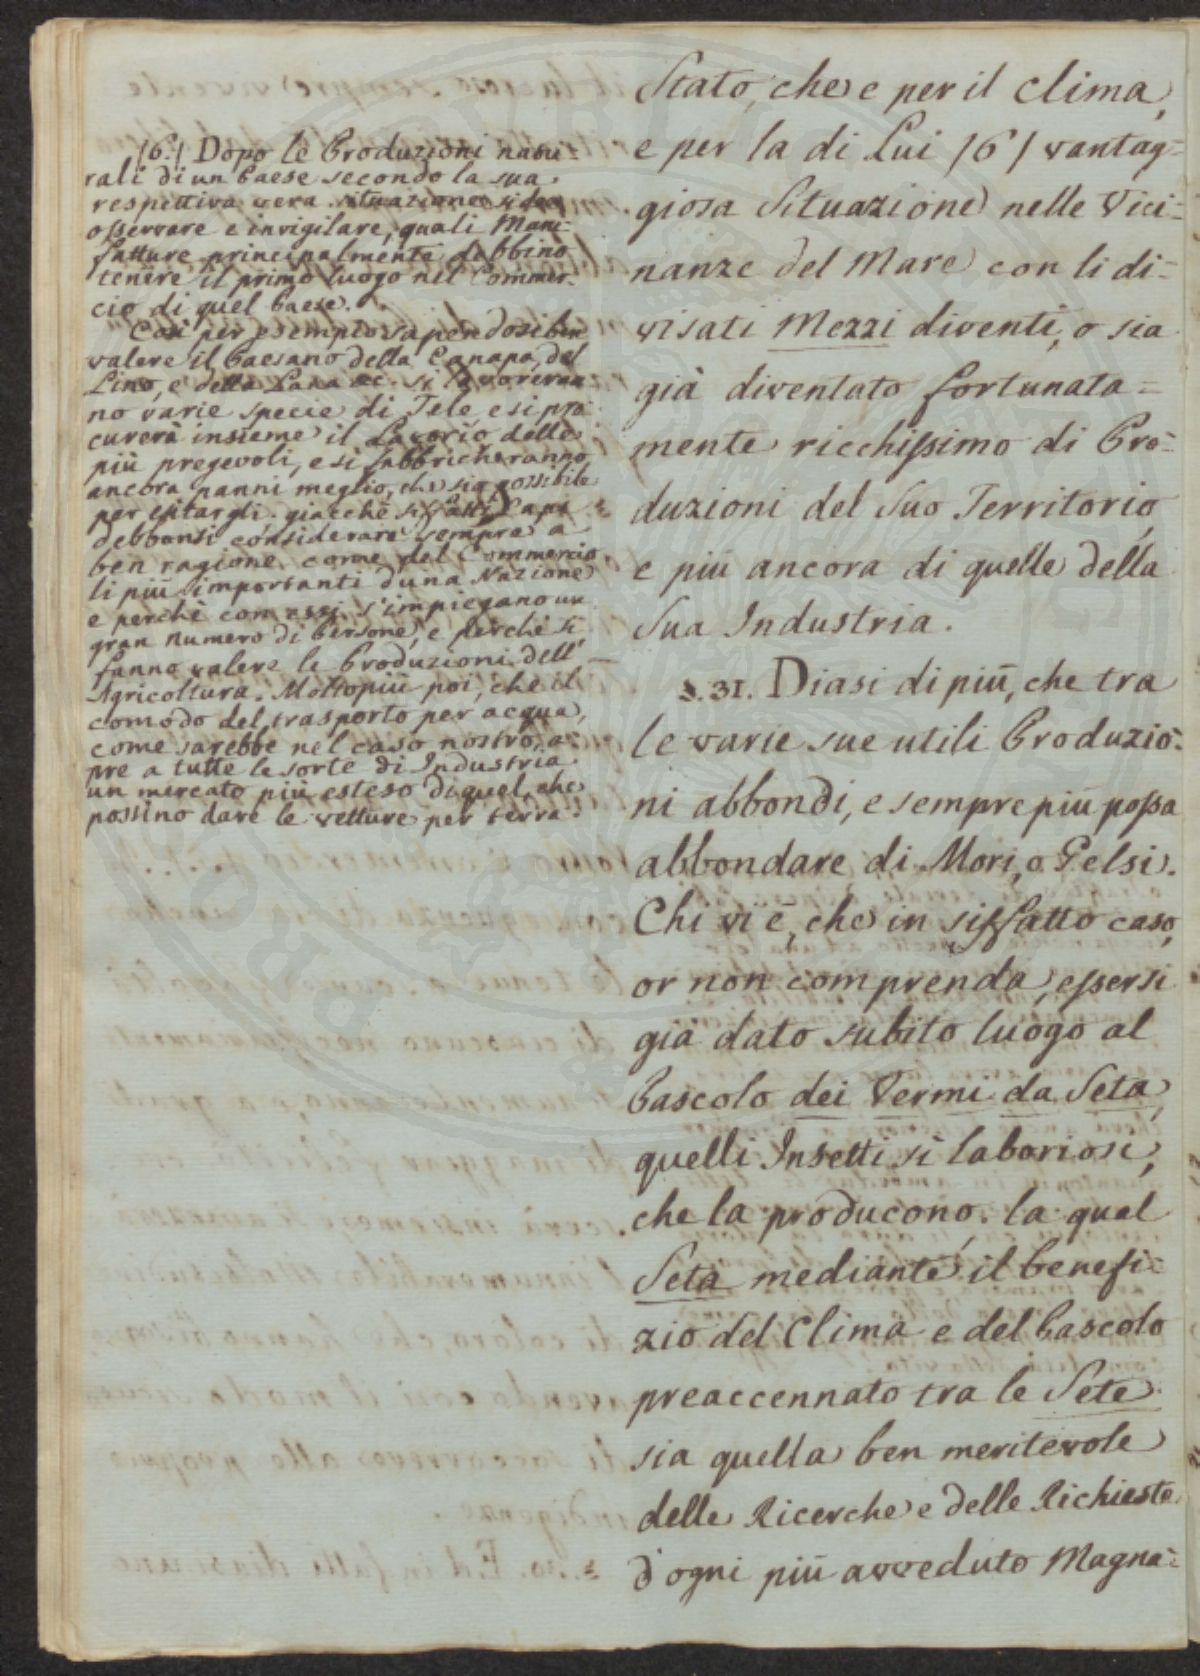 (6.) Dopo le Produzioni natu-
rali di un Paese secondo la sua
respettiva vera situazione si dee
osservare e invigilare, quali Mani-
fatture principalmente debbino
tenere il primo luogo nel Commer-
cio di quel Paese.
Così per esempio sapendosi ben
valere il Paesano della Canapa, del
Lino, e della Lana &c. si lavoreran-
no varie specie di Tele e si pro-
curerà insieme il Lavorio delle
più pregevoli, e si fabbricheranno
ancora panni meglio, che sia possibile
per esitargli. giacchè sì fatti Capi
debbonsi considerare sempre a
ben ragione come del Commercio
li più importanti d'una Nazione
e perchè con essi s'impiegano un
gran numero di Persone, e perchè si
fanno valere le Produzioni dell'
Agricoltura. Molto più poi, che il
comodo del trasporto per acqua,
come sarebbe nel caso nostro, a-
pre a tutte le sorte di Industria
un mercato più esteso di quel, che
possino dare le vetture per terra.
Stato, che e per il clima,
e per la di Lui (6) vantag=
giosa Situazione nelle Vici=
nanze del Mare con li di=
visati Mezzi diventi, o sia
già diventato fortunata=
mente ricchissimo di Pro=
duzioni del Suo Territorio,
e più ancora di quelle della
Sua Industria.
§. 31. Diasi di più, che tra
le varie sue utili Produzio=
ni abbondi, e sempre più possa
abbondare di Mori, o Gelsi.
Chi vi è, che in siffatto caso,
or non comprenda, essersi
già dato subito luogo al
Pascolo dei Vermi da Seta,
quelli Insetti sì laboriosi,
che la producono, la qual
Seta mediante il benefi=
zio del Clima e del Pascolo
preaccennato tra le Sete
sia quella ben meritevole
delle Ricerche e delle Richieste
d'ogni più avveduto Magna=